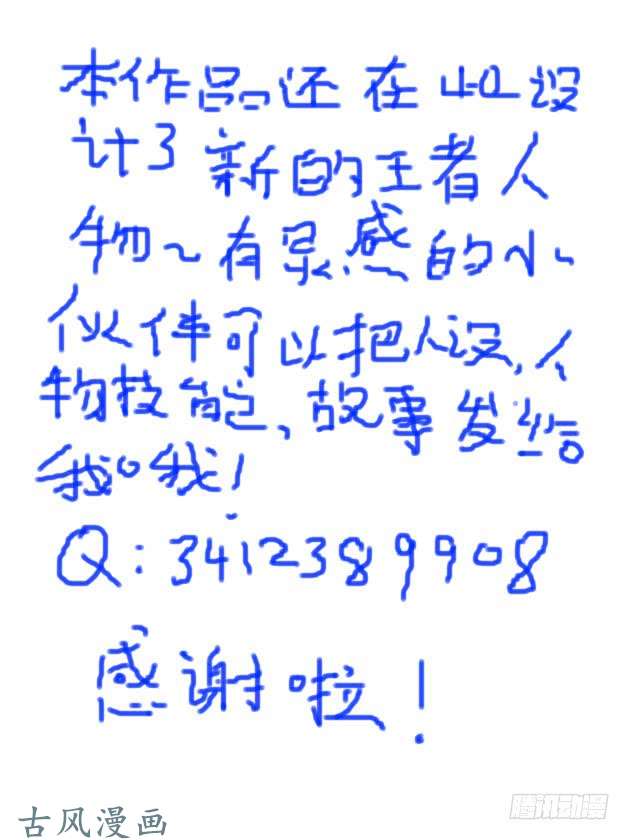 本作品还在加设
计了新的王者人
物~有灵感的小
伙伴可以把人设,人
物技能,故事发给
我哦!
Q:3412389908
感谢啦!
古风漫画
腾讯动漫